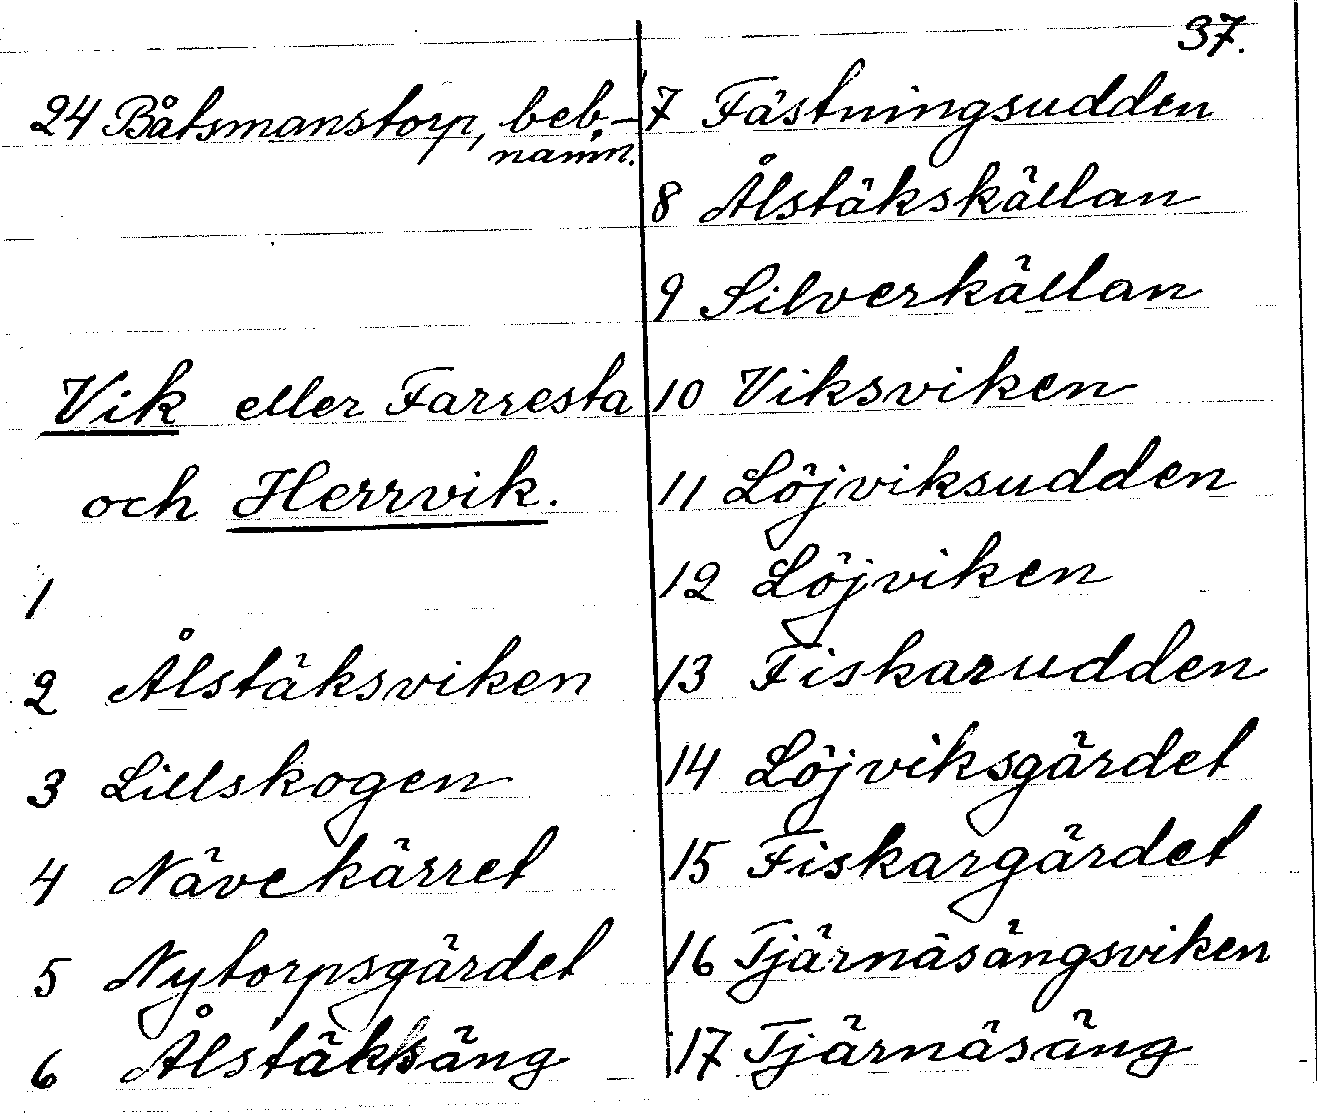 37.
24 Båtsmanstorp, beb.-
namn.
Vik eller Farresta
och Herrvik.
1
2 Ålstäksviken
3 Lillskogen
4 Nävekärret
5 Nytorpsgärdet
6 Ålstäksäng
7 Fästningsudden
8 Ålstäkskällan
9 Silverkällan
10 Viksviken
11 Löjviksudden
12 Löjviken
13 Fiskarudden
14 Löjviksgärdet
15 Fiskargärdet
16 Tjärnäsängsviken
17 Tjärnäsäng